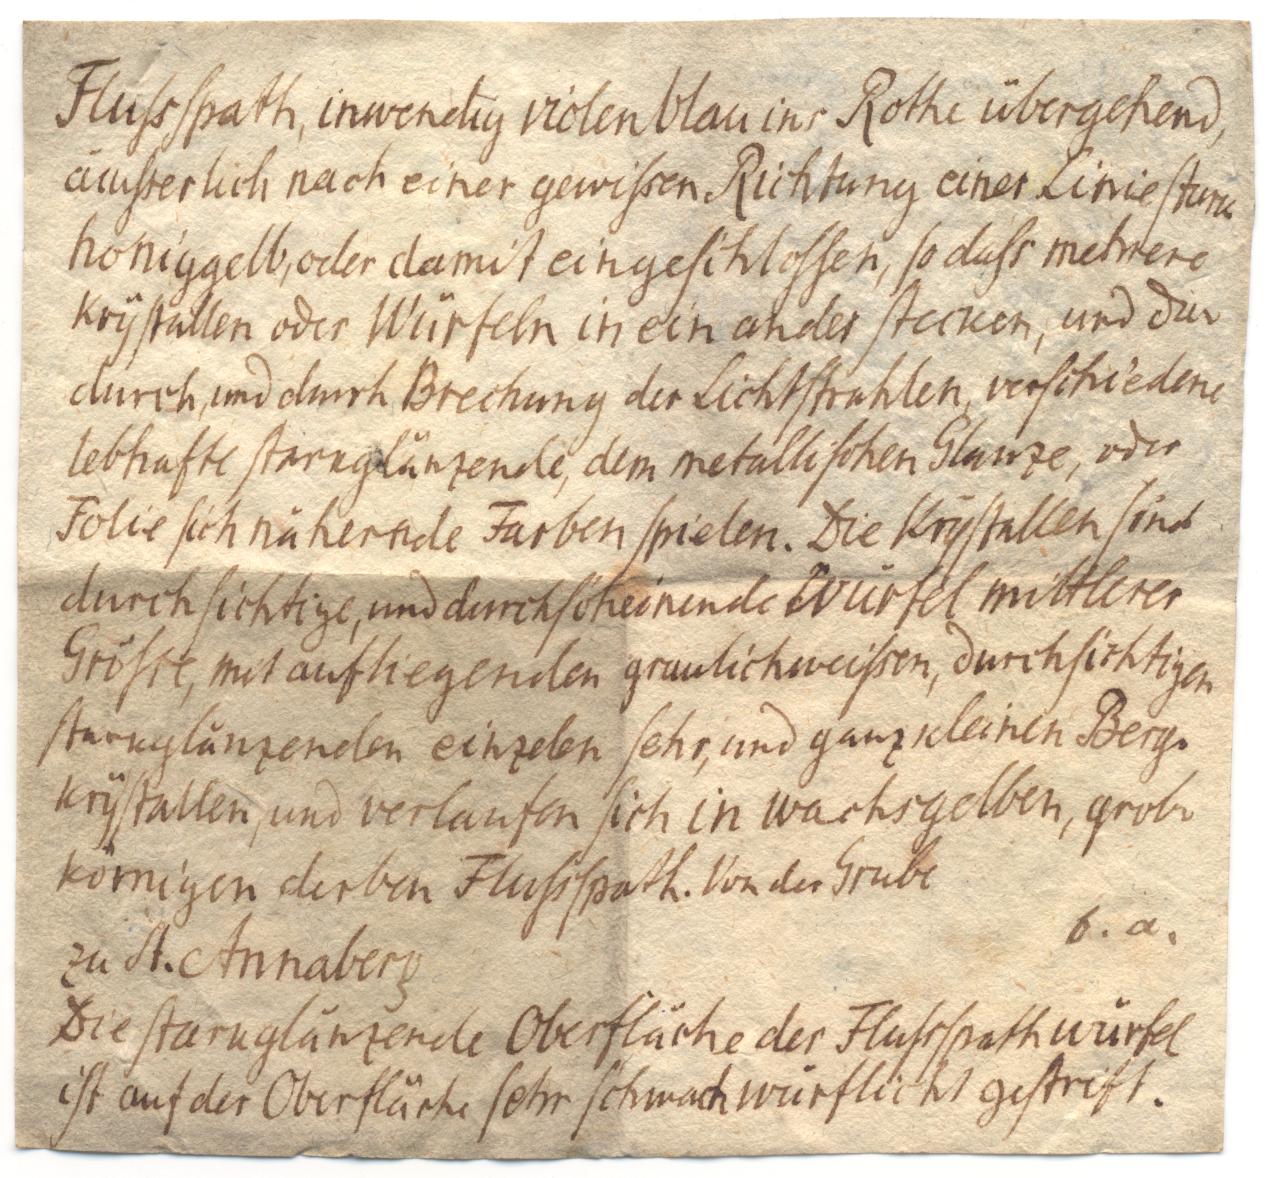 Flussspath, inwendig violenblau ins Rothe übergehend,
äusserlich nach einer gewissen Richtung einer Linie stark
honiggelb, oder damit eingeschlossen, so dass mehrere
Krÿstallen oder Würfeln in ein ander stecken, und da
durch, und durch Brechung der Lichtstrahlen, verschiedene
lebhafte starkglänzende, dem metallischen Glanze, oder
Folie sich nähernde Farben spielen. Die Krÿstallen sind
durchsichtige, und durchscheinende Würfel mittlerer
Grösse, mit aufliegenden graulichweissen, durchsichtigen
starkglänzenden einzelen sehr, und ganz kleinen Berg-
krÿstallen, und verlaufen sich in wachsgelben, grob-
körnigen derben Flussspath. Von der Grube
6. a.
zu St. Annaberg
Die starkglänzende Oberfläche der Flussspathwürfel
ist auf der Oberfläche sehr schwach würflicht gestrift.